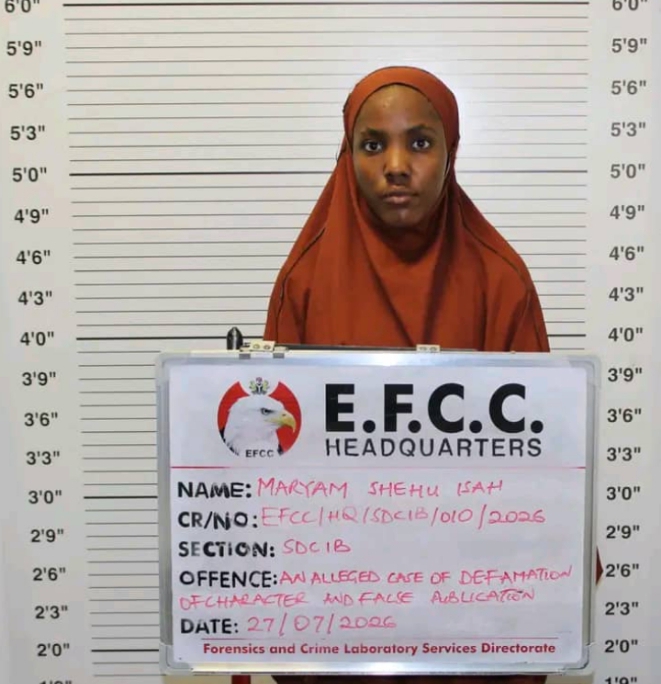 6'0" 6'0"
5'9" 5'9"
5'6" 5'6"
5'3" 5'3"
5'0" 5'0"
4'9" 4'9"
4'6" 4'6"
4'3" 4'3"
4'0" 4'0"
3'9" 3'9"
3'6" 3'6"
3'3" 3'3"
3'0" 3'0"
2'9" 2'9"
2'6" 2'6"
2'3" 2'3"
2'0" 2'0"
1'9" 1'9"
EFCC
E.F.C.C.
HEADQUARTERS
NAME: MARYAM SHEHU ISAH
CR/NO: EFCC/HQ/SDCIB/010/2026
SECTION: SDCIB
OFFENCE: AN ALLEGED CASE OF DEFAMATION
OF CHARACTER AND FALSE PUBLICATION
DATE: 27/07/2026
Forensics and Crime Laboratory Services Directorate